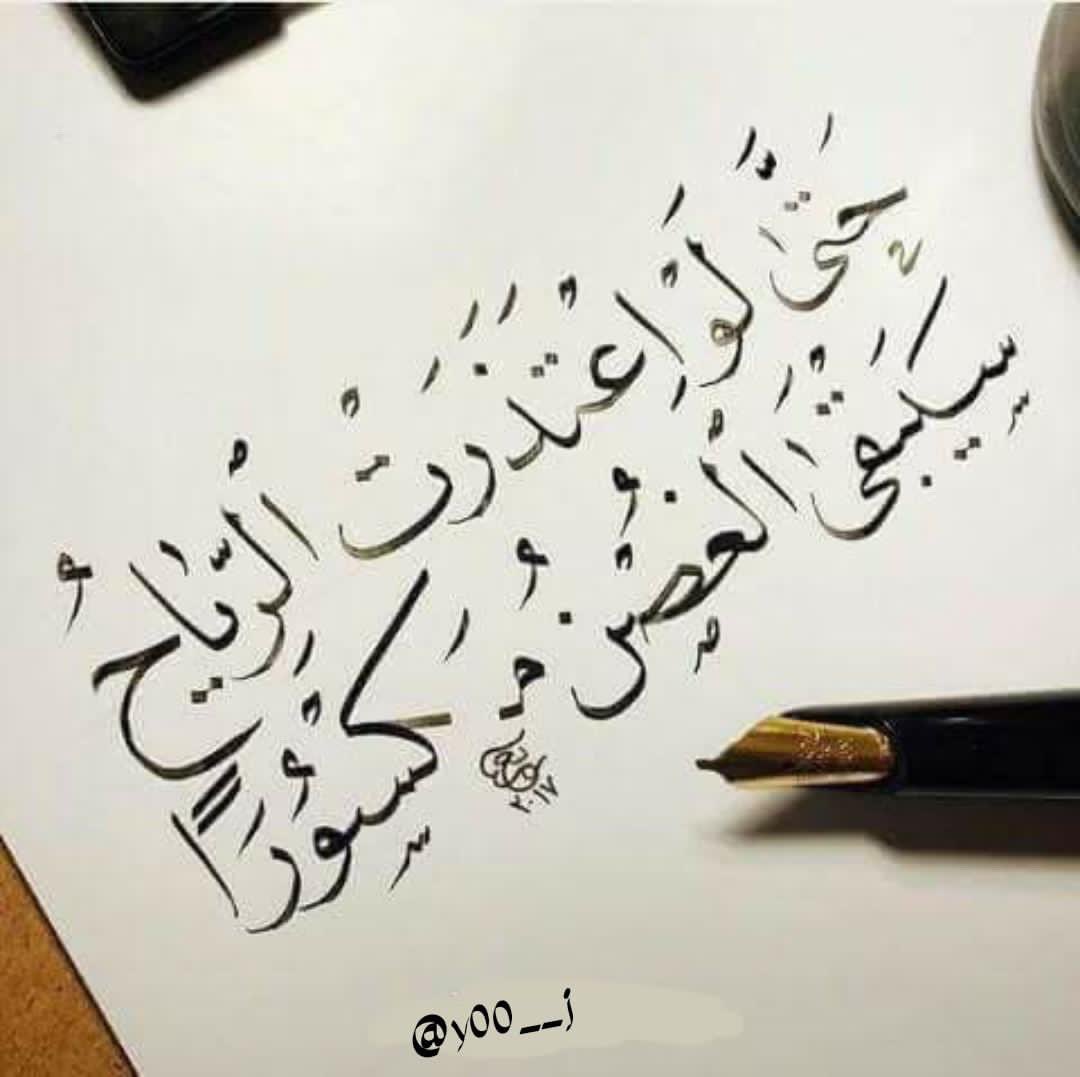 حَتَّىٰ لَوْ اِعْتَذَرَتْ الْرِّيَاحُ
سَيَبْقَىٰ الْغُصْنُ مَكْسُوْرًا
٢٠١٧
@y00__j